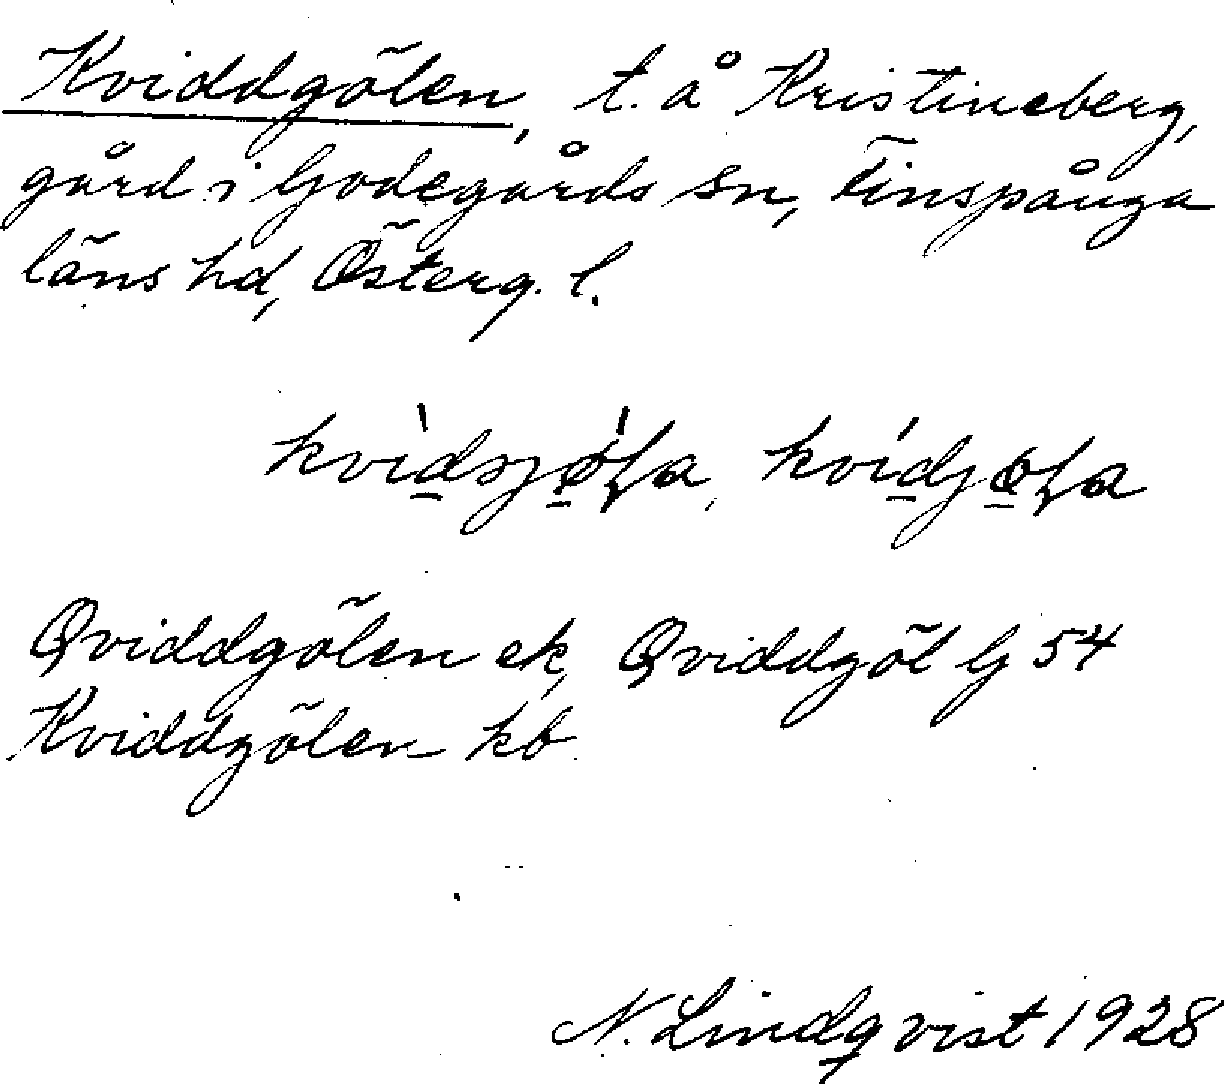 Kviddgölen, t. å Kristineberg,
gård i Godegårds sn, Finspånga
läns hd, Österg. l.
Qviddgölen ek, Qviddgöl G 54
Kviddgölen kb
N. Lindqvist 1928